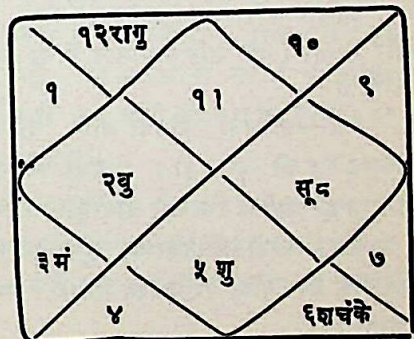 १२रागु
१०
१
११
९
२वु
सू८
३मं
५शु
७
४
६शचंके